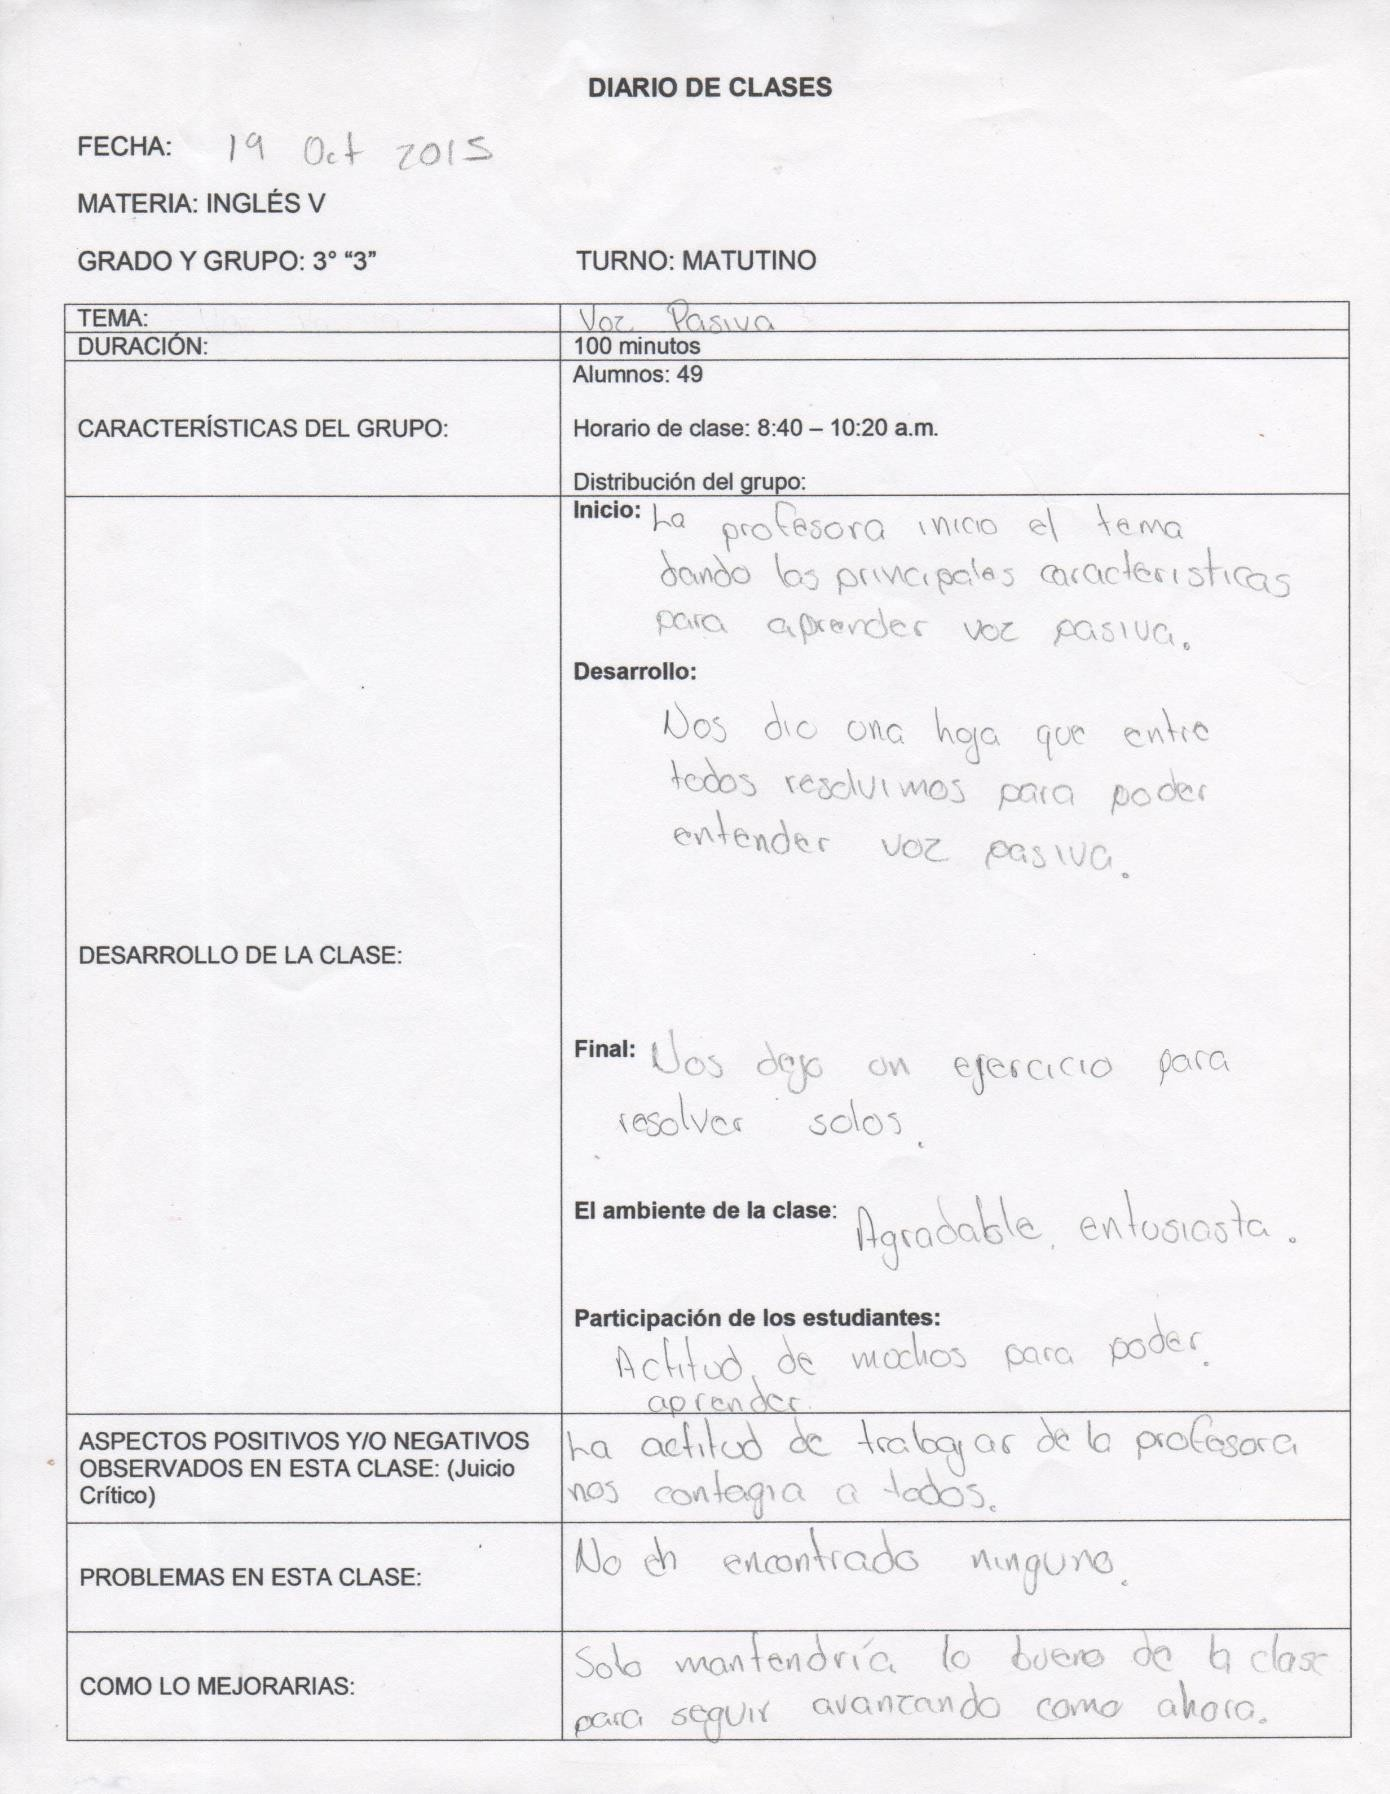 DIARIO DE CLASES
FECHA: 19 Oct 2015
MATERIA: INGLÉS V
GRADO Y GRUPO: 3° “3” TURNO: MATUTINO
TEMA: Voz Pasiva
DURACIÓN: 100 minutos
Alumnos: 49
CARACTERÍSTICAS DEL GRUPO: Horario de clase: 8:40 – 10:20 a.m.
Distribución del grupo:
Inicio: La profesora inicio el tema
dando las principales caracteristicas
para aprender voz pasiva.
Desarrollo:
Nos dio una hoja que entre
todos resolvimos para poder
entender voz pasiva.
DESARROLLO DE LA CLASE:
Final: Nos dejo un ejercicio para
resolver solos.
El ambiente de la clase: Agradable, entusiasta.
Participación de los estudiantes:
Actitud de muchos para poder
aprender.
ASPECTOS POSITIVOS Y/O NEGATIVOS
OBSERVADOS EN ESTA CLASE: (Juicio
Crítico)
La actitud de trabajar de la profesora
nos contagia a todos.
PROBLEMAS EN ESTA CLASE: No eh encontrado ninguno.
COMO LO MEJORARIAS:
Solo mantendría lo bueno de la clase
para seguir avanzando como ahora.